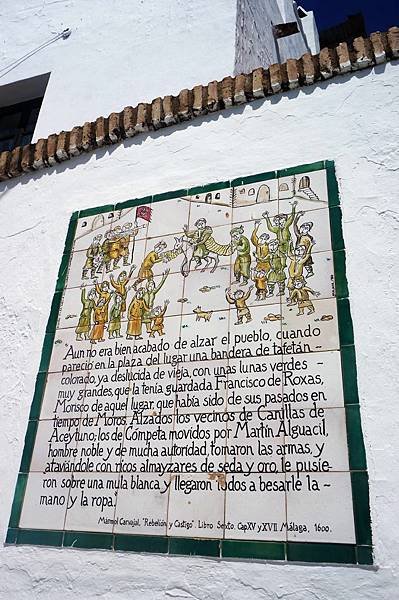 Aun no era bien alzar el pueblo, cuando
pareció en la plaza del lugar una bandera de tafetán –
colorado, ya deslucida de vieja, con unas lunas verdes –
muy grandes, que la tenía guardada Francisco de Roxas,
Morisco de aquel lugar, que había sido de sus pasados en
tiempo de Moros. Alzados los vecinos de Canillas de
Aceytuno; los de Cómpeta movidos por Martín Alguacil,
hombre noble y de mucha autoridad, tomaron las armas, y
ataviándole con ricos almayzares de seda y oro, le pusie-
ron sobre una mula blanca, y llegaron todos a besarle la –
mano y la ropa."
Mármol Carvajal, "Rebelión y Castigo". Libro Sexto. Cap XV y XVII. Málaga, 1600.